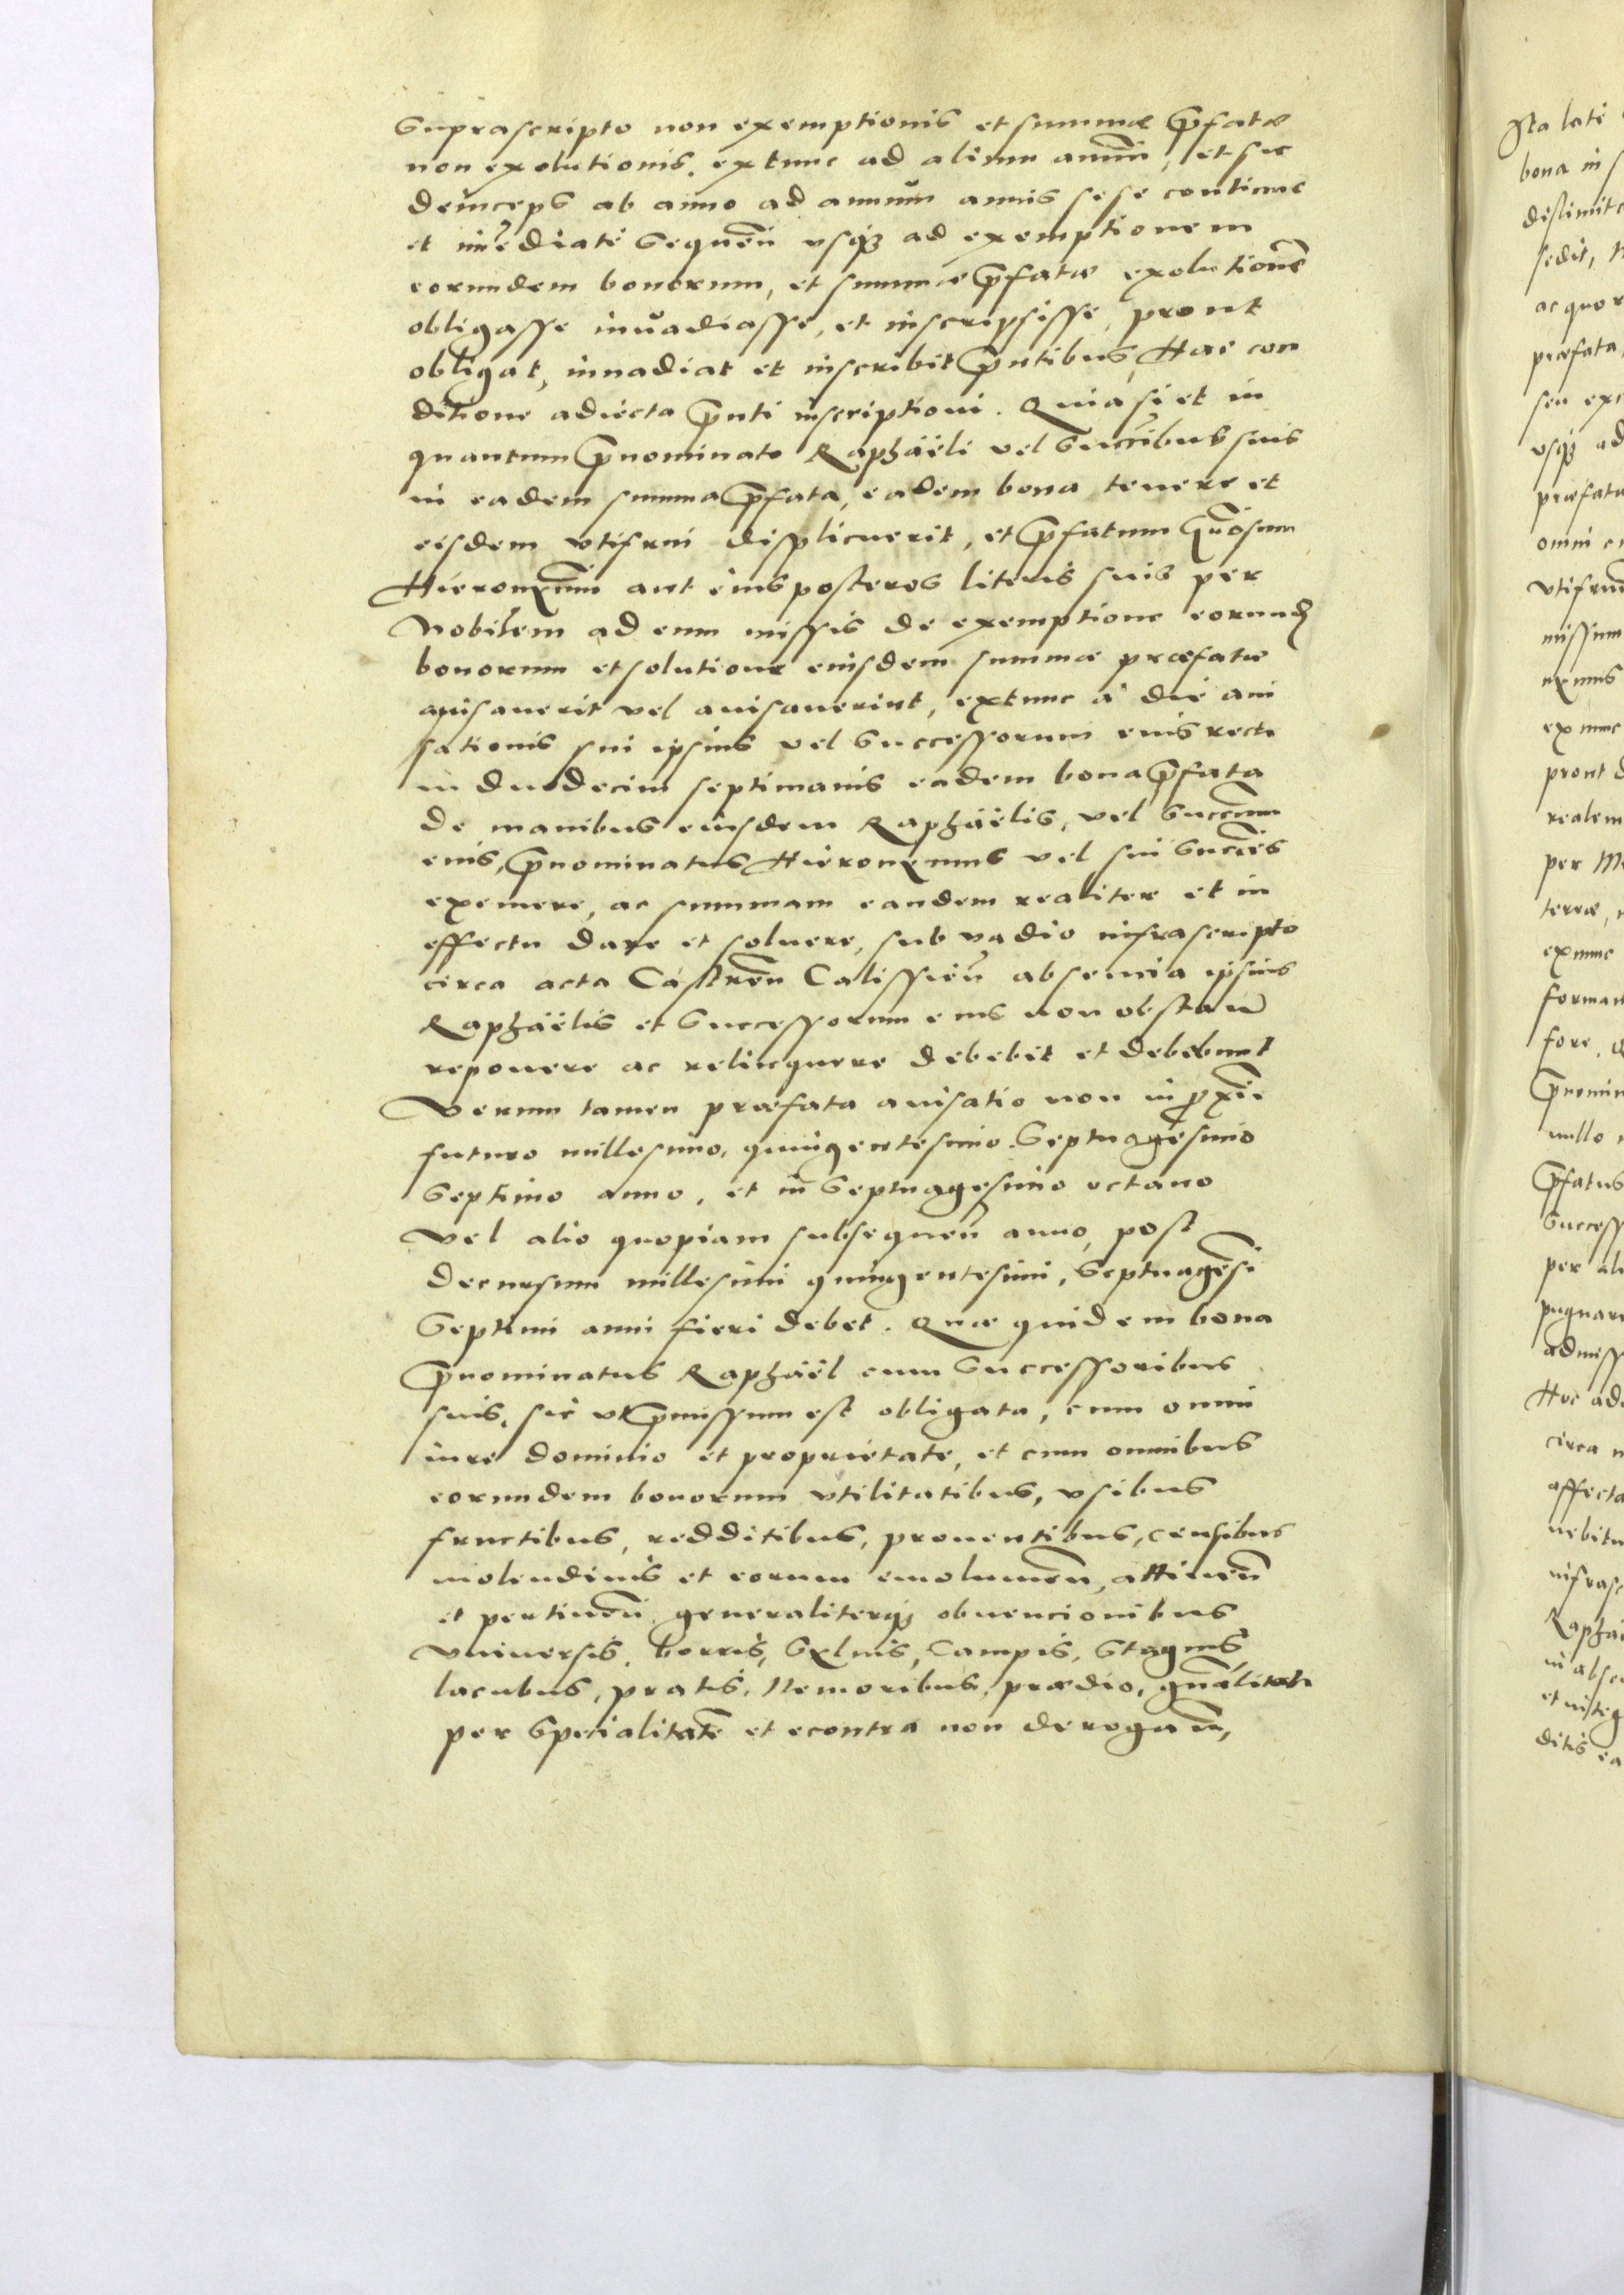 suprascripto non exemptionis et summæ p̄fatæ
non exolutionis, extunc ad alium annū, et sic
deinceps ab anno ad annum annis sese continue
et im̄ediate sequen̄ vsq3 ad exemptionem
eorundem bonorum, et summæ p̄fatæ exolutionē
obligasse inuadiasse, et inscripsisse, prout
obligat, inuadiat et inscribit p̄ntibus, Hac con
ditione adiecta p̄nti inscriptioni. Quia si et in
quantum p̄nominato Raphaëli vel succ̄ribus suis
in eadem summa p̄fata, eadem bona tenere et
eisdem vtifrui displicuerit, et p̄fatum gn̄osum
Hieronymū aut eius posteros literis suis per
Nobilem ad eum missis de exemptione eorund
bonorum et solutione eiusdem summæ præfatæ
auisauerit vel auisauerint, extunc à die aui
sationis sui ipsius vel successorum eius recte
in duodecim septimanis eadem bona p̄fata
de manibus eiusdem Raphaëlis, vel succ̄rum
eius, p̄nominatus Hieronymus vel sui succ̄res
exemere, ac summam eandem realiter et in
effectu dare et soluere, sub vadio infrascripto
circa acta Castren̄ Calissien̄ absencia ipsius
Raphaëlis et successorum eius non obstan̄
reponere ac relinquere debebit et debebunt
Verum tamen præfata auisatio non in proxiē
futuro millesimo, quingentesimo septuagesimo
septimo anno, et in septuagesimo octauo
vel alio quopiam subsequen̄ anno, post
decursum millesimi quingentesimi, septuagēsi
septimi anni fieri debet. Quæ quidem bona
p̄nominatus Raphaël cum successoribus
suis, sic vt p̄missum est obligata, cum omni
iure dominio et proprietate, et cum omnibus
eorundem bonorum vtilitatibus, vsibus
fructibus, redditibus, prouentibus, censibus
molendinis et eorum emolumen̄, attinen̄
et pertinen̄ generaliterq3 obuencionibus
vniuersis, borris, syluis, Campis, stagnis,
lacubus, pratis, Nemoribus, prædio, gn̄alitate
per specialitatē et econtra non derogan̄,
Ita late
bona in s
distincte
sedit,
ac quor
præfata,
seu ex
vsq3 ad
præfata
omni
vtifru
missum
nymus
ex nunc
prout d
realem
per M
terræ,
exnunc
forma
fore,
p̄nomin
nullo
p̄fatus
success
per ali
pugnar
admiss
Hoc ad
circa
affecta
uebitu
infrasc
Rapha
in abse
et integ
ditis ea